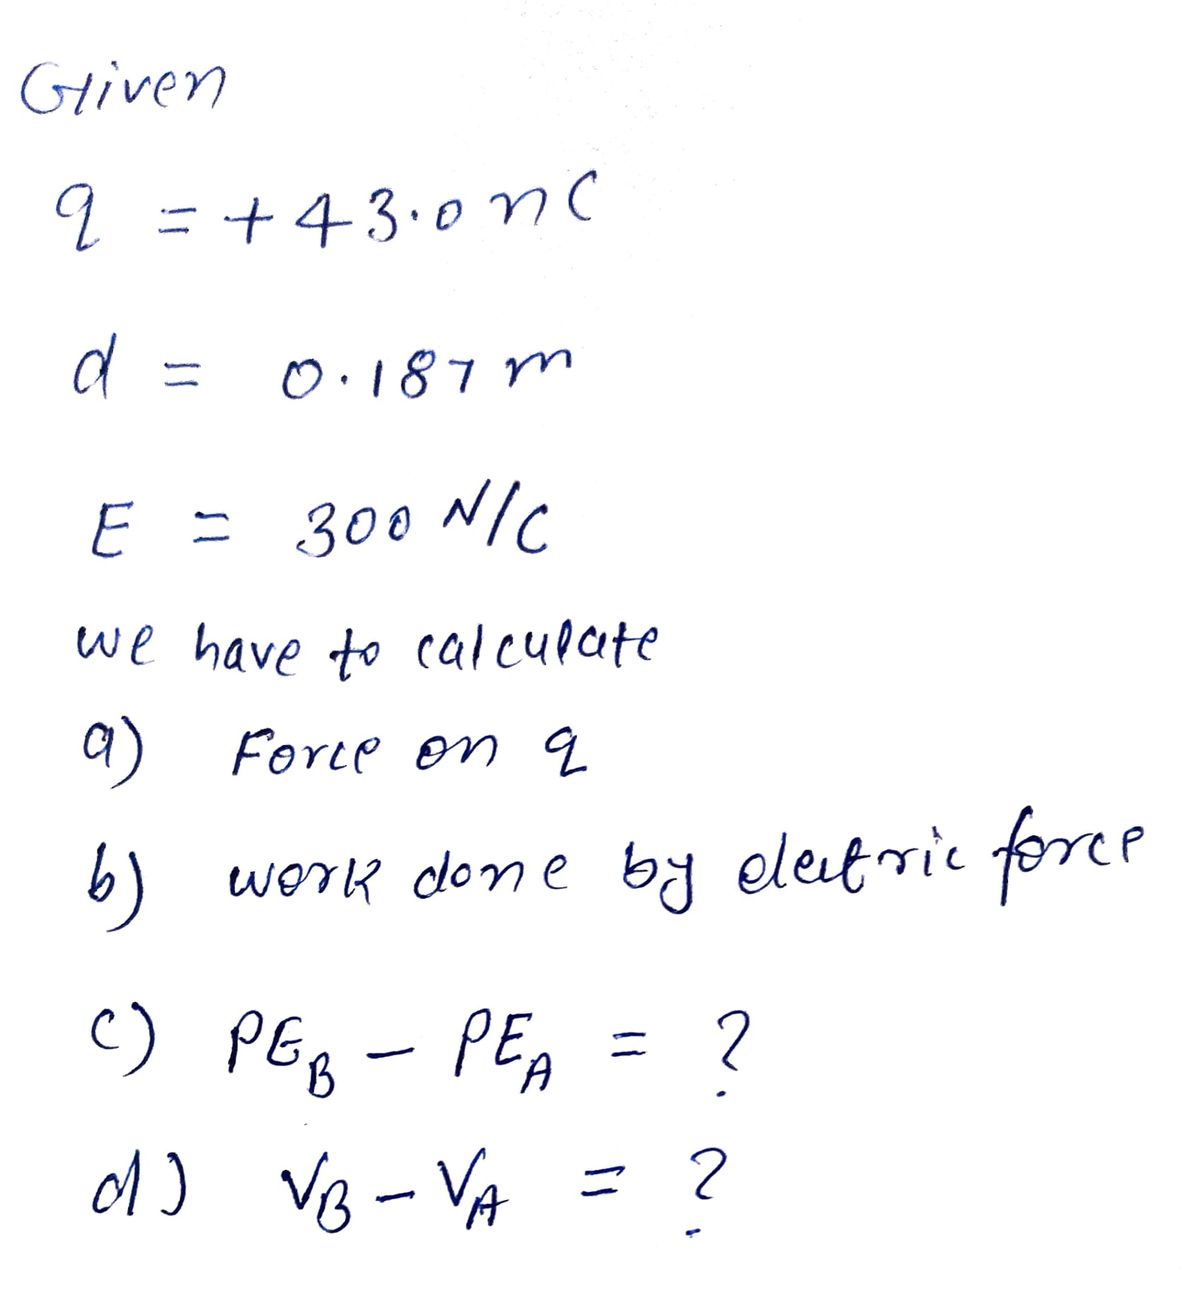 Given
q = +43.0 nC
d = 0.187 m
E = 300 N/C
we have to calculate
a) Force on q
b) work done by electric force
c) PE_B - PE_A = ?
d) V_B - V_A = ?